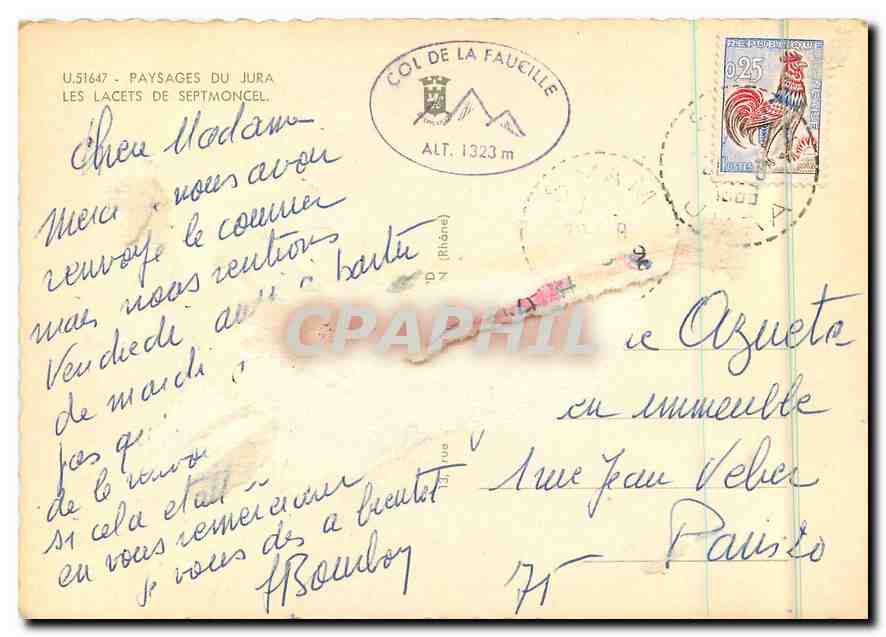 U.51647 - PAYSAGES DU JURA
LES LACETS DE SEPTMONCEL.
COL DE LA FAUCILLE
ALT. 1323 m
REPUBLIQUE FRANÇAISE
0,25
POSTES
Chere Madame
Merci, vous avoir
renvoyé le courrier
mais nous rentrions
Vendredi aussi a partir
de mardi
pas qu
de le renvo
si cela était
en vous remerciant
je vous dis a bientot
Bomboy
N (Rhône)
13, rue
Azueta
en immeuble
1 rue Jean Veber
Paris 20
75
CPAPHIL